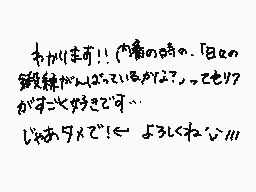 わかります!! 内番の時の、「日々の
鍛錬がんばっているかな?」ってセリフ
がすごく好きです…
じゃあタメで!← よろしくね'ω'///